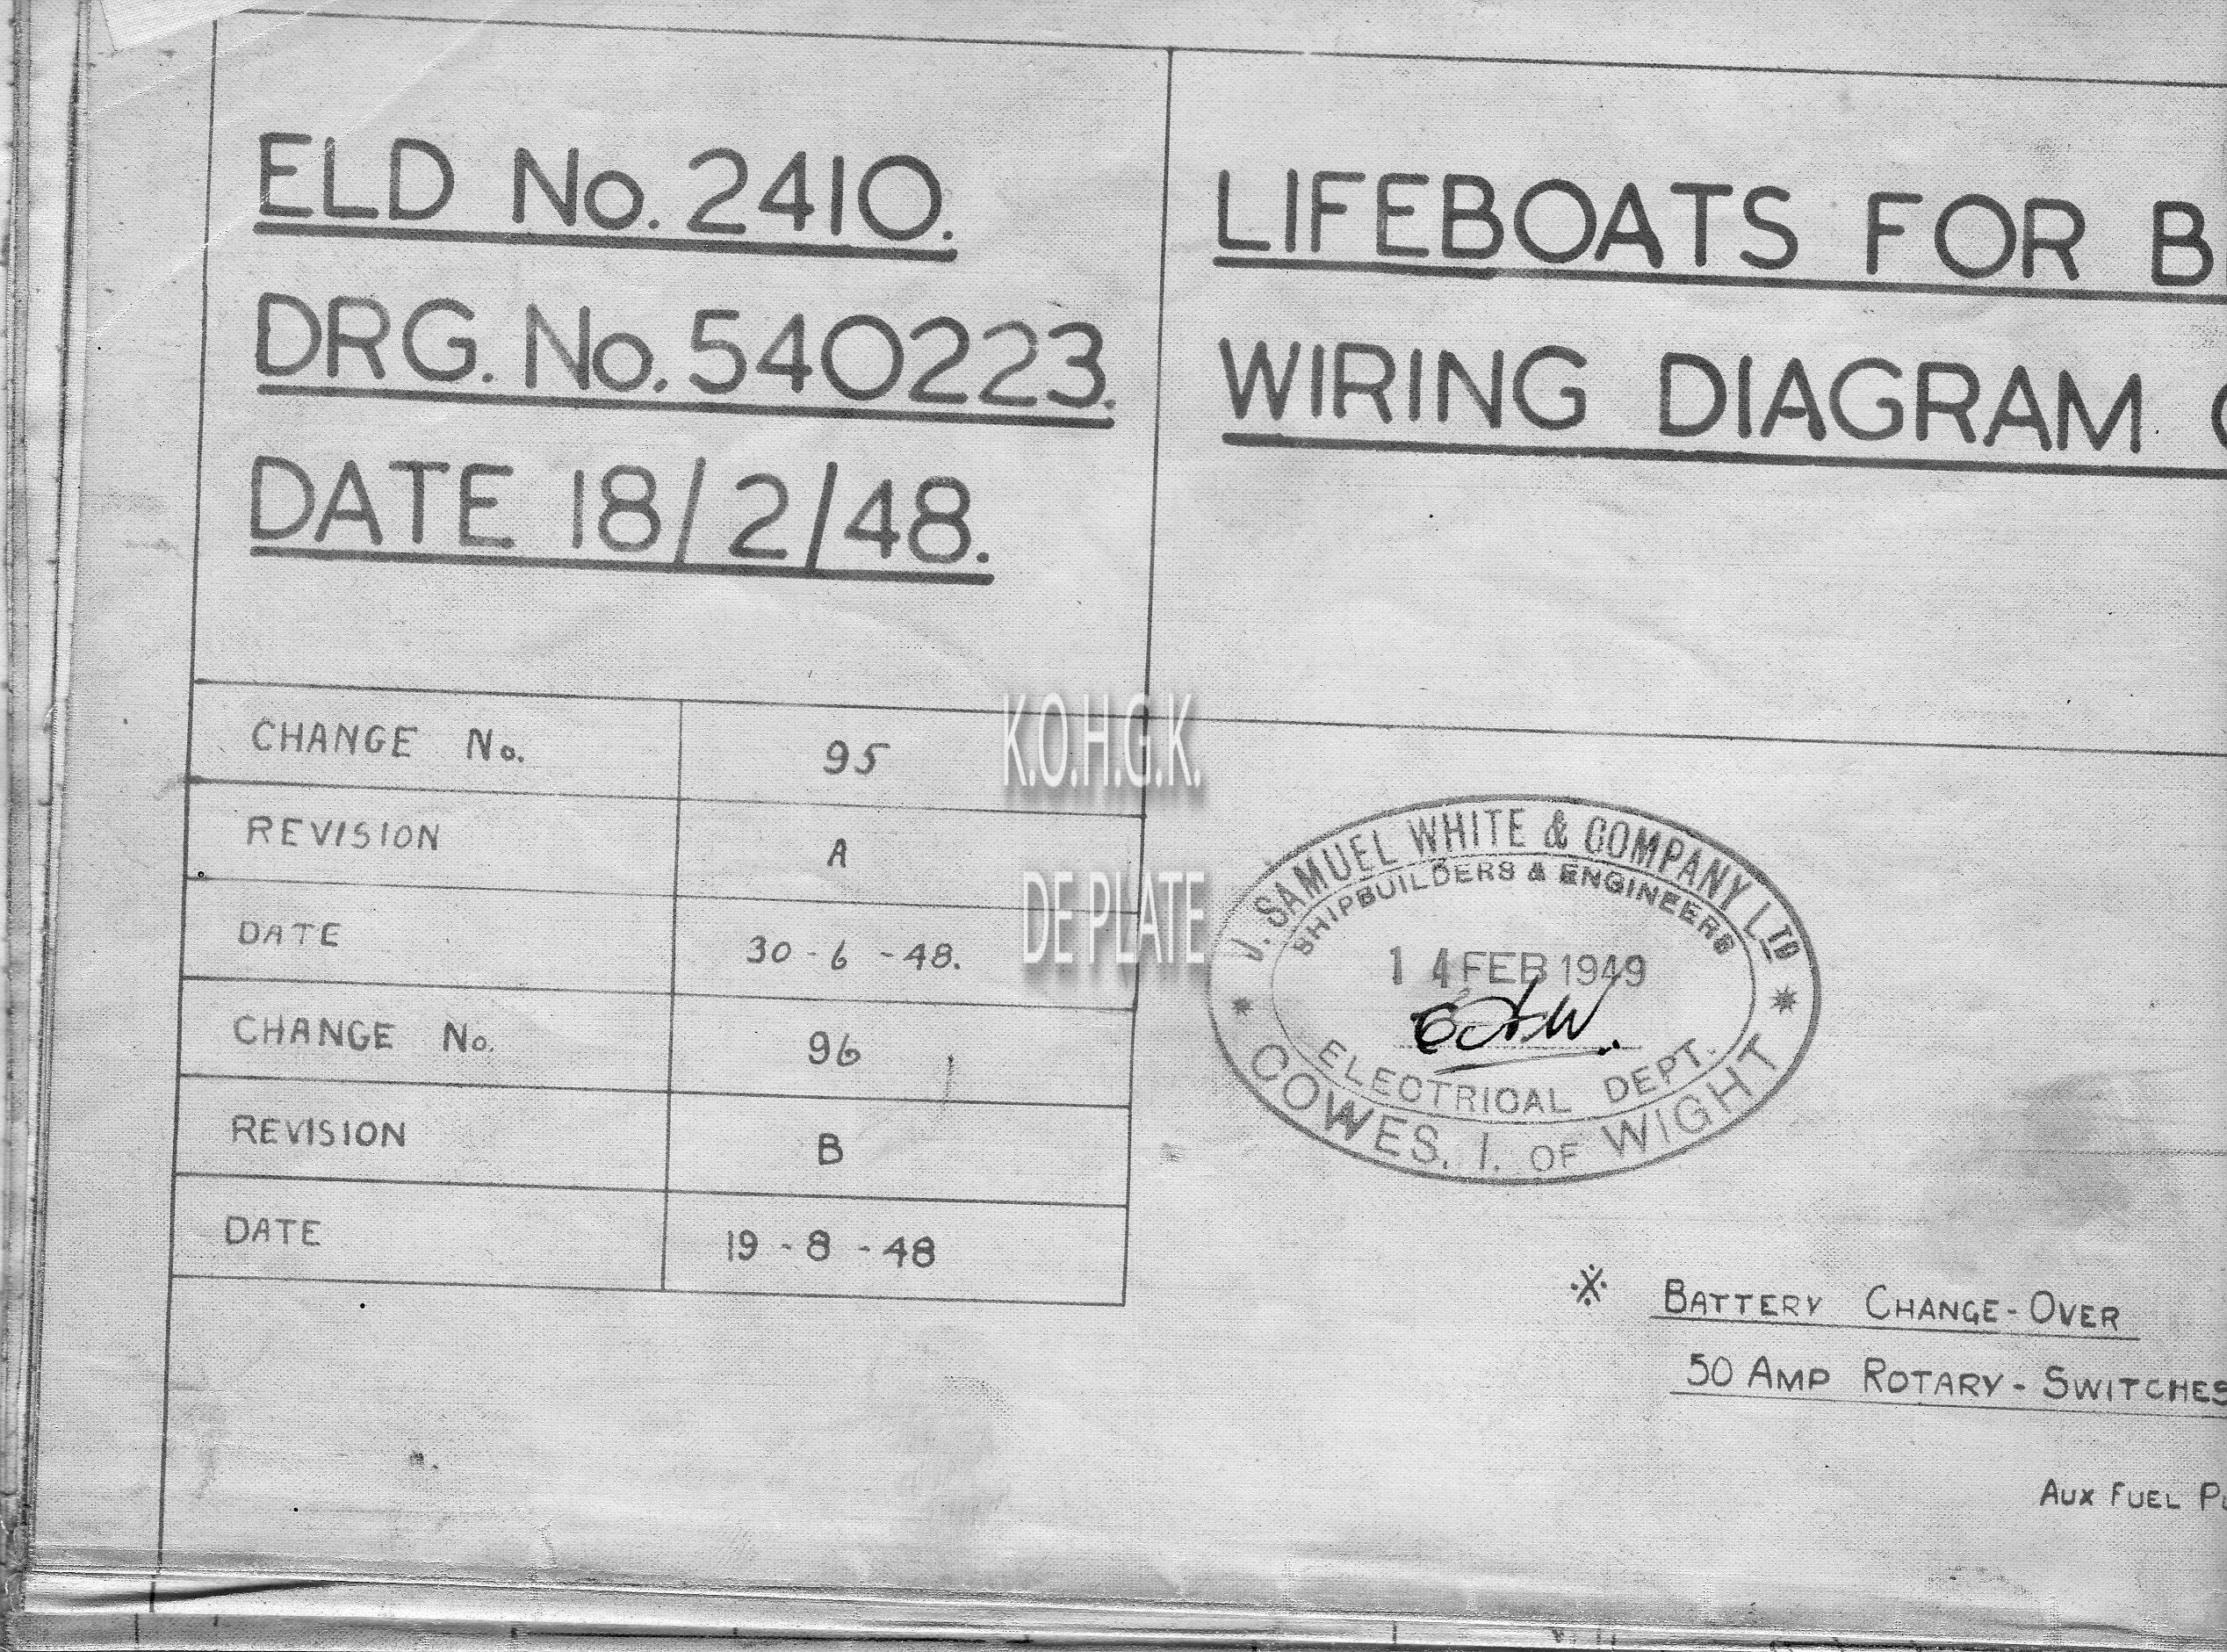 ELD No. 2410.
DRG. No. 540223.
DATE 18/2/48.
LIFEBOATS FOR B
WIRING DIAGRAM
CHANGE No. 95
REVISION A
DATE 30-6-48.
CHANGE No. 96
REVISION B
DATE 19-8-48
K.O.H.G.K.
DE PLATE
J. SAMUEL WHITE & COMPANY LTD
SHIPBUILDERS & ENGINEERS
14 FEB 1949
ELECTRICAL DEPT.
COWES, I. OF WIGHT
※ BATTERY CHANGE-OVER
50 AMP ROTARY-SWITCHES
AUX FUEL